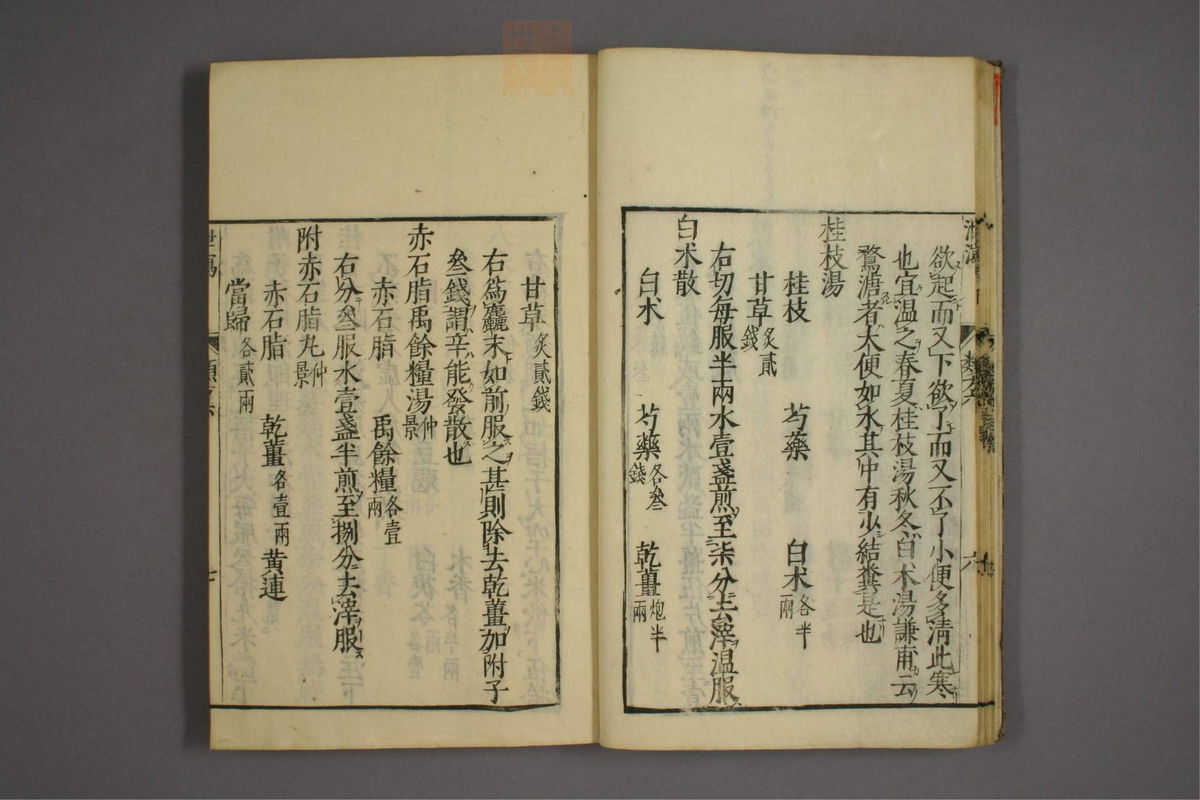 欲起而又下欲了而又不了小便多清此寒
也宜温之春夏桂枝湯秋冬白木湯謙甫云
鶩溏者大便如水其中有少結糞是也
桂枝湯
桂枝 芍藥 白朮各半兩
甘草炙貳錢
右切每服半兩水壹盞煎至柒分去滓温服
白朮散
白朮 芍藥各叄錢 乾薑炮半兩
甘草炙貳錢
右為麤末如前服之甚則除去乾薑加附子
叄錢謂辛能發散也
赤石脂禹餘糧湯仲景
赤石脂 禹餘糧各壹兩
右分叄服水壹盞半煎至捌分去滓服
附赤石脂丸仲景
赤石脂 乾薑各壹兩 黄連
當歸各貳兩